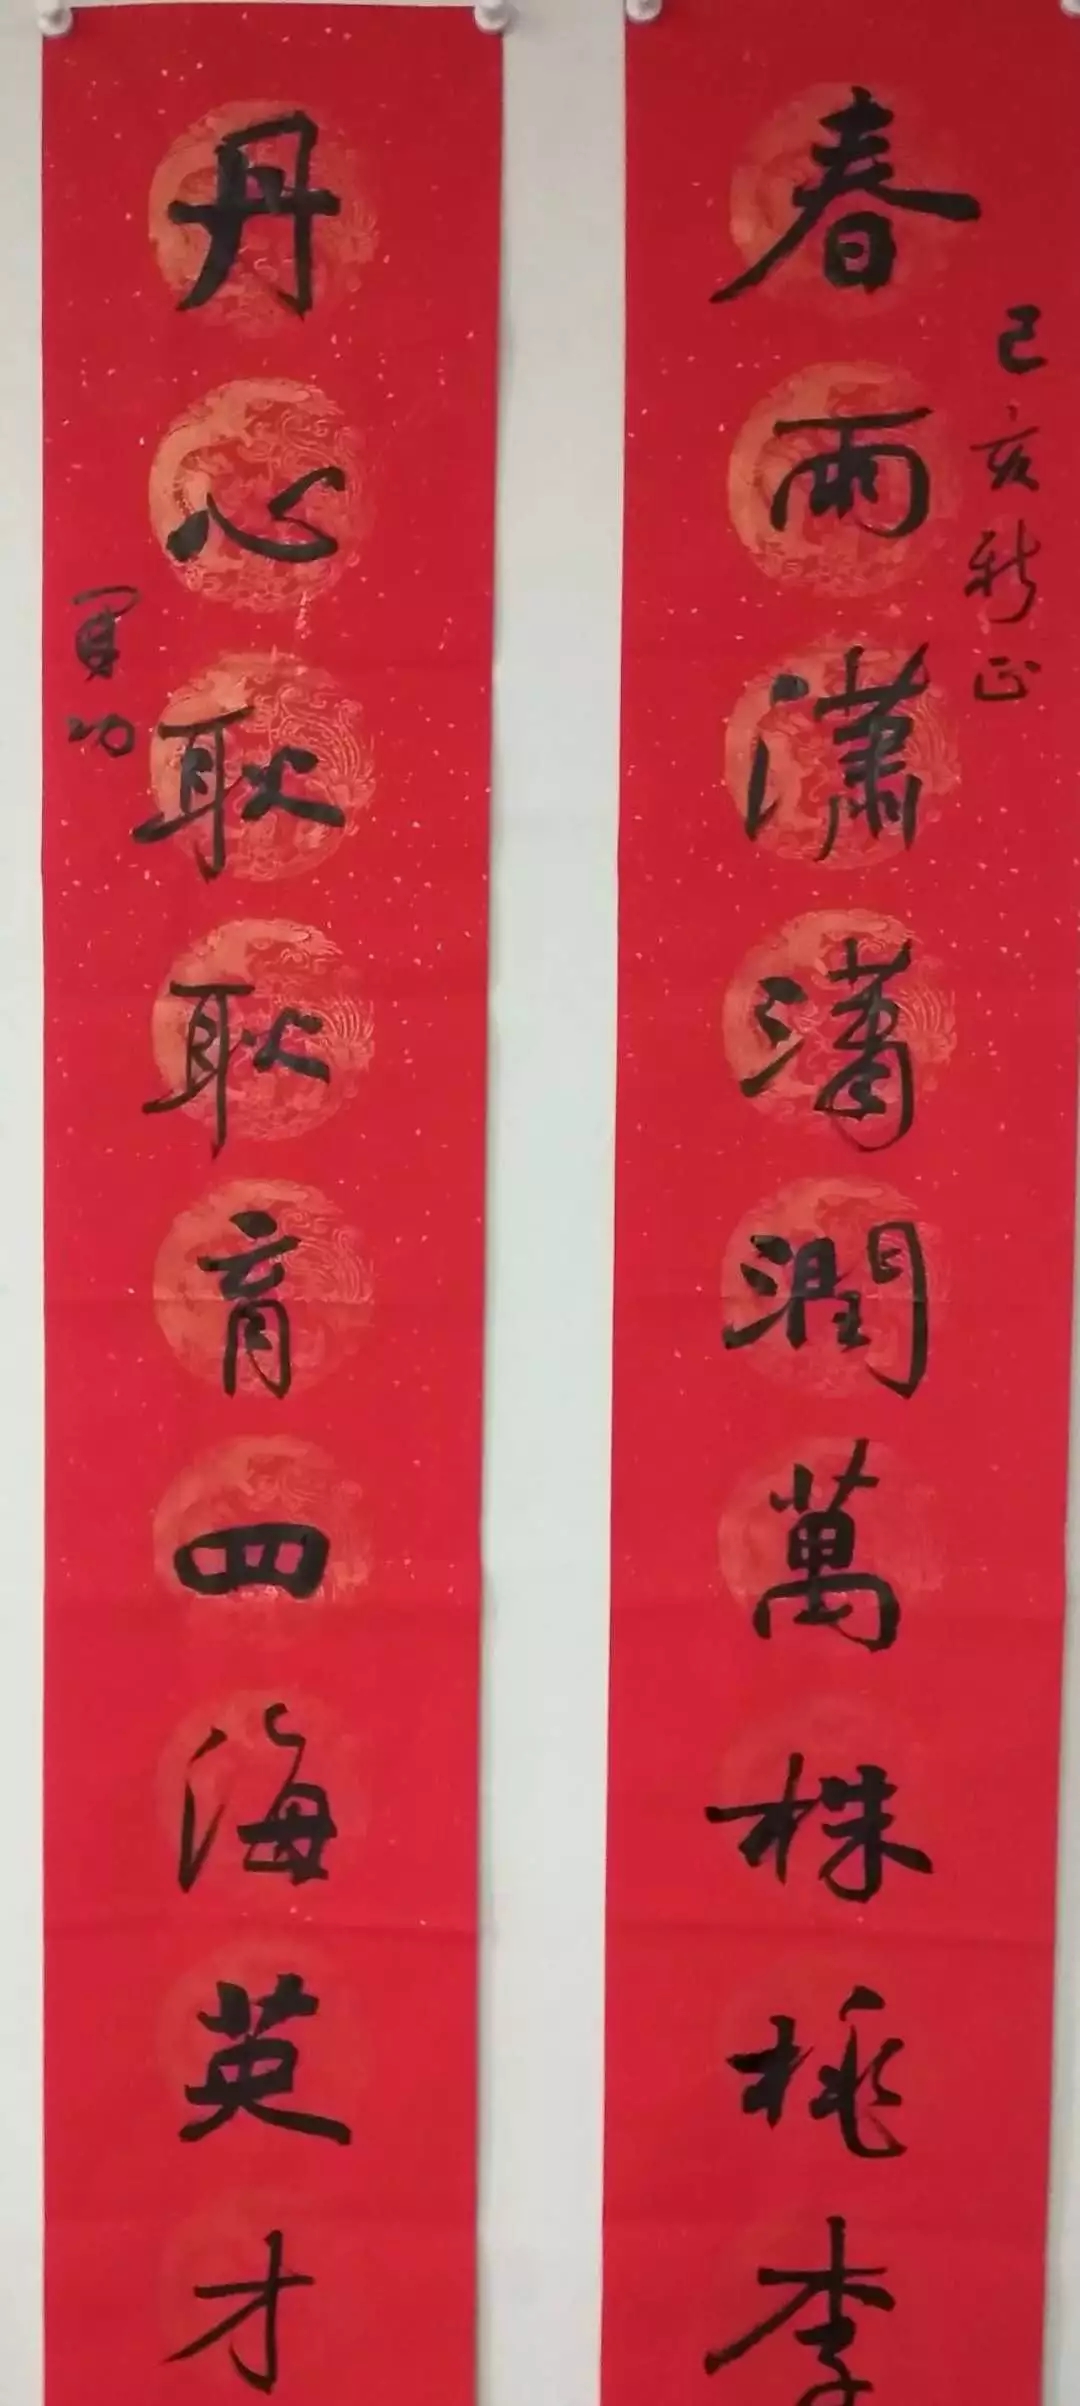 春雨瀟瀟潤萬株桃李
己亥新正
丹心耿耿育四海英才